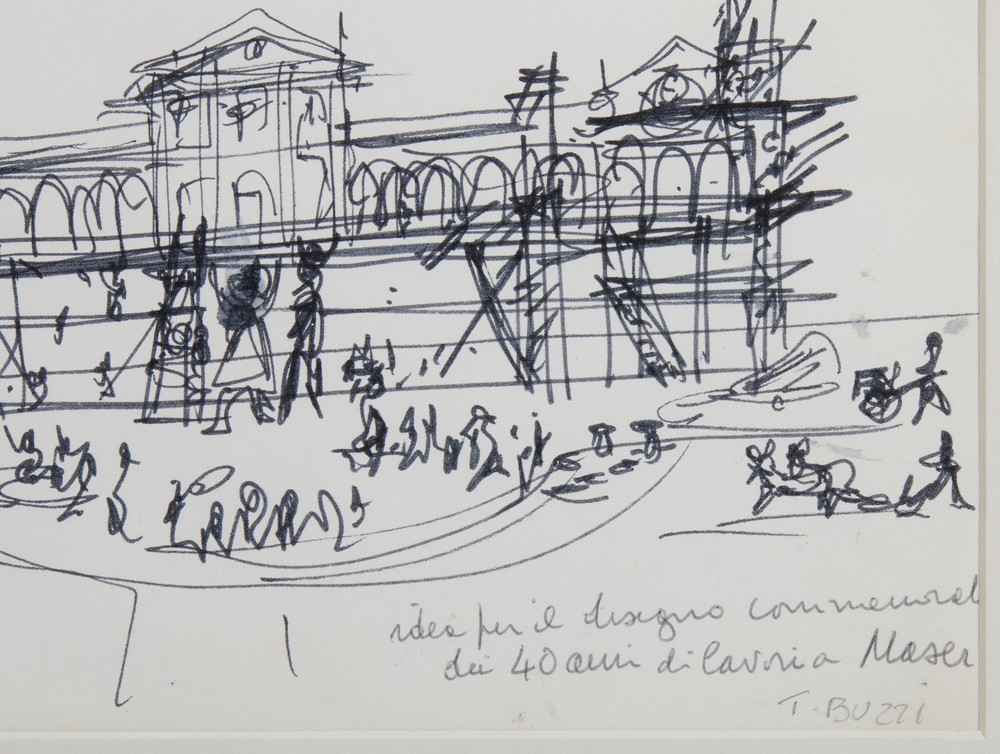 idea per il disegno commemorat
dei 40 anni di lavori a Maser
T. BUZZI